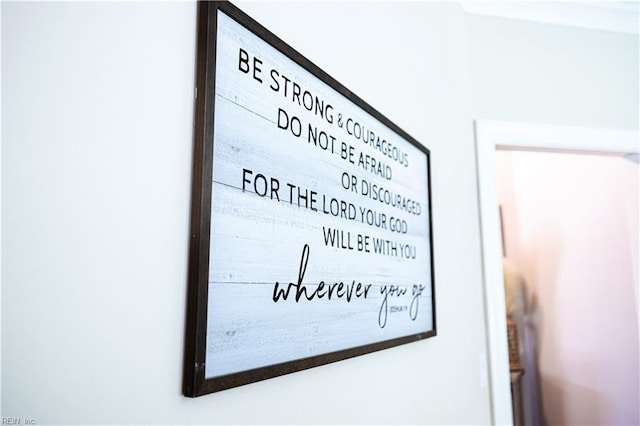 BE STRONG & COURAGEOUS
DO NOT BE AFRAID
OR DISCOURAGED
FOR THE LORD YOUR GOD
WILL BE WITH YOU
wherever you go
JOSHUA 1:9
REIN, Inc.